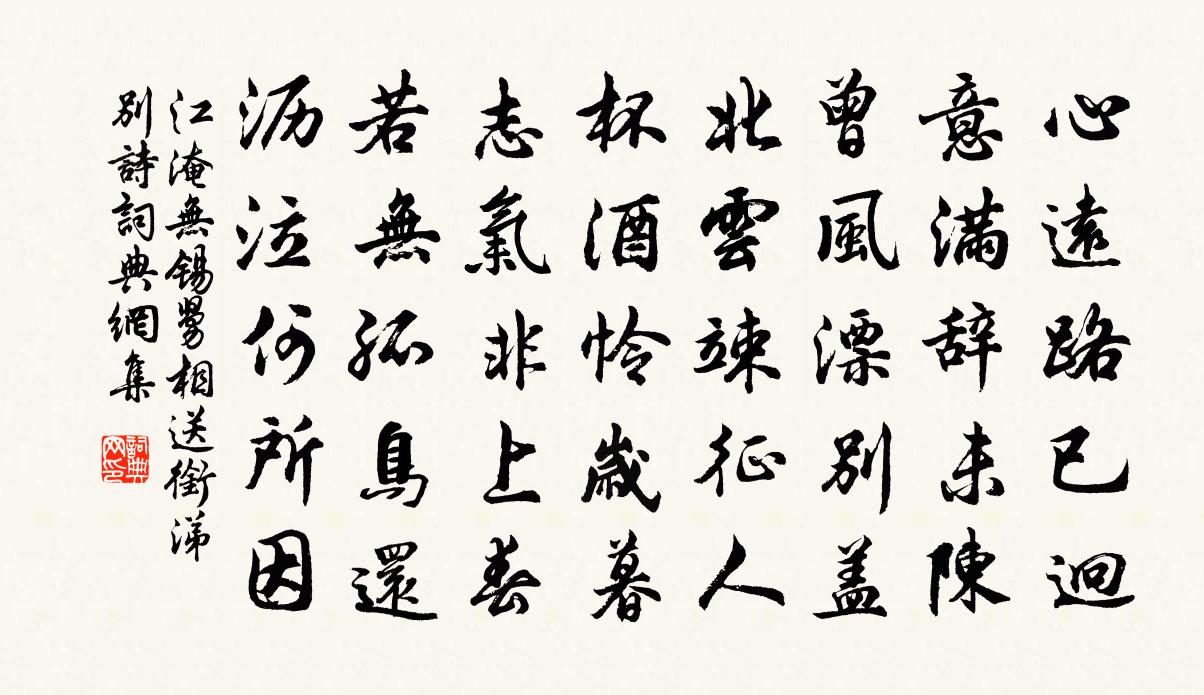 心遠路已迥
意滿辞未陳
曾風漂別盖
北雲竦征人
杯酒怜歲暮
志氣非上春
若無孤鳥還
沥泣何所因
江淹無錫舅相送銜涕
別詩詞典網集
詞典
网印